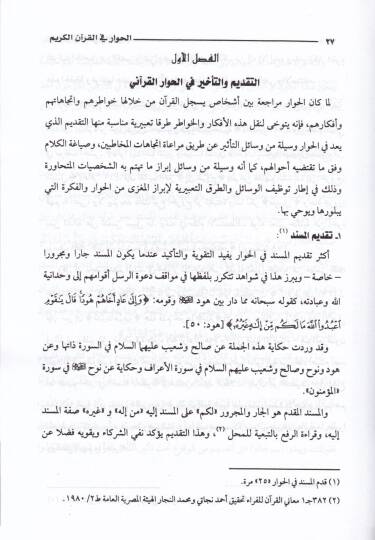 ٢٧ الحوار في القرآن الكريم
الفصل الأول
التقديم والتأخير في الحوار القرآني
لما كان الحوار مراجعة بين أشخاص يسجل القرآن من خلالها خواطرهم واتجاهاتهم
وأفكارهم، فإنه يتوخى لنقل هذه الأفكار والخواطر طرقا تعبيرية مناسبة منها التقديم الذي
يعد في الحوار وسيلة من وسائل التأثير عن طريق مراعاة اتجاهات المخاطبين، وصياغة الكلام
وفق ما تقتضيه أحوالهم، كما أنه وسيلة من وسائل إبراز ما تهتم به الشخصيات المتحاورة
وذلك في إطار توظيف الوسائل والطرق التعبيرية لإبراز المغزى من الحوار والفكرة التي
يبلورها ويوحي بها.
١ـ تقديم المسند (١):
أكثر تقديم المسند في الحوار يفيد التقوية والتأكيد عندما يكون المسند جارا ومجرورا
- خاصة - ويبرز هذا في شواهد تتكرر بلفظها في مواقف دعوة الرسل أقوامهم إلى وحدانية
الله وعبادته، كقوله سبحانه مما دار بين هود ﷺ وقومه: ﴿وَإِلَىٰ عَادٍ أَخَاهُمْ هُودًا قَالَ يَنقَوْمِ
اعْبُدُوا اللَّهَ مَا لَكُم مِّنْ إِلَٰهٍ غَيْرُهُ﴾ [هود: ٥٠].
وقد وردت حكاية هذه الجملة عن صالح وشعيب عليهما السلام في السورة ذاتها وعن
هود ونوح وصالح وشعيب عليهم السلام في سورة الأعراف وحكاية عن نوح ﷺ في سورة
«المؤمنون».
والمسند المقدم هو الجار والمجرور «لكم» على المسند إليه «من إله» و «غيره» صفة المسند
إليه، وقراءة الرفع بالتبعية للمحل (٢)، وهذا التقديم يؤكد نفي الشركاء ويقويه فضلا عن
(١) قدم المسند في الحوار «٢٥» مرة.
(٢) ٣٨٢جـ١ معاني القرآن للفراء تحقيق أحمد نجاتي ومحمد النجار الهيئة المصرية العامة ط٢/ ١٩٨٠.